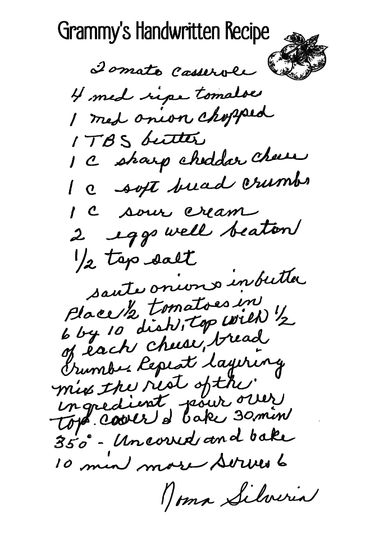 Grammy's Handwritten Recipe
Tomato Casserole
4 med ripe tomatoes
1 med onion chopped
1 TBS butter
1 C sharp cheddar cheese
1 C soft bread crumbs
1 C sour cream
2 eggs well beaton
1/2 tsp salt
saute onions in butter
Place 1/2 tomatoes in
6 by 10 dish, top with 1/2
of each cheese, bread
crumbs. Repeat layering
mix the rest of the
ingredient pour over
top. cover & bake 30 min
350° - Uncoverd and bake
10 min more Serves 6
Noma Silveria